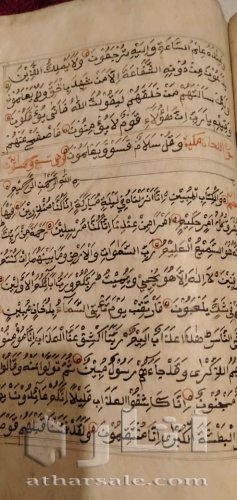 وعنده علم الساعة وإليه ترجعون ولا يملك الذين
يدعون من دونه الشفاعة إلا من شهد بالحق وهم يعلمون
ولئن سألتهم من خلقهم ليقولن الله فأنى يؤفكون
وقيله يا رب إن هؤلاء قوم لا يؤمنون فاصفح عنهم
وقل سلام فسوف يعلمون
الله الرحمن الرحيم
والكتاب المبين إنا أنزلناه في ليلة مباركة إنا كنا منذرين
كل أمر حكيم أمرا من عندنا إنا كنا مرسلين رحمة من
هو السميع العليم رب السماوات والأرض وما بينهما إن
لا إله إلا هو يحيي ويميت ربكم ورب آبائكم الأولين
في شك يلعبون فارتقب يوم تأتي السماء بدخان مبين
الناس هذا عذاب أليم ربنا اكشف عنا العذاب إنا مؤمنون
لهم الذكرى وقد جاءهم رسول مبين ثم تولوا عنه وقالوا
مجنون إنا كاشفوا العذاب قليلا إنكم عائدون يوم
البطشة الكبرى إنا منتقمون ولقد فتنا قبلهم قوم
atharsale.com